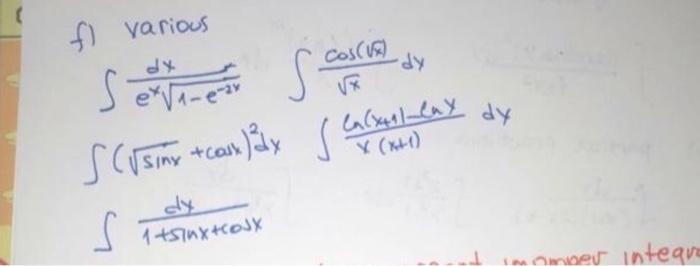 f) various
∫ dx / (eˣ√(1-e⁻²ˣ)) ∫ cos(√x)/√x dx
∫(√sinx + cosx)² dx ∫ (ln(x+1)-lnx)/(x(x+1)) dx
∫ dx/(1+sinx+cosx)
improper integra